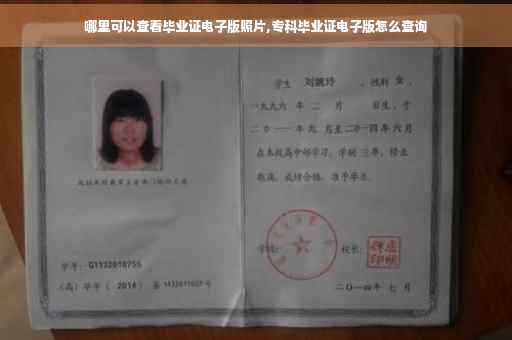 哪里可以查看毕业证电子版照片,专科毕业证电子版怎么查询
学生 刘婉玲 ，性别 女 ，
一九九六 年 二 月 日生，于
二０一一 年 九 月至 二０一四 年 六 月
在本校高中部学习，学制 三 年，修业
期满，成绩合格，准予毕业。
学校： 校长：
二０一四 年 七 月
学号：G1132010755
(高) 毕字 ( 2014 ) 第 1432011007 号